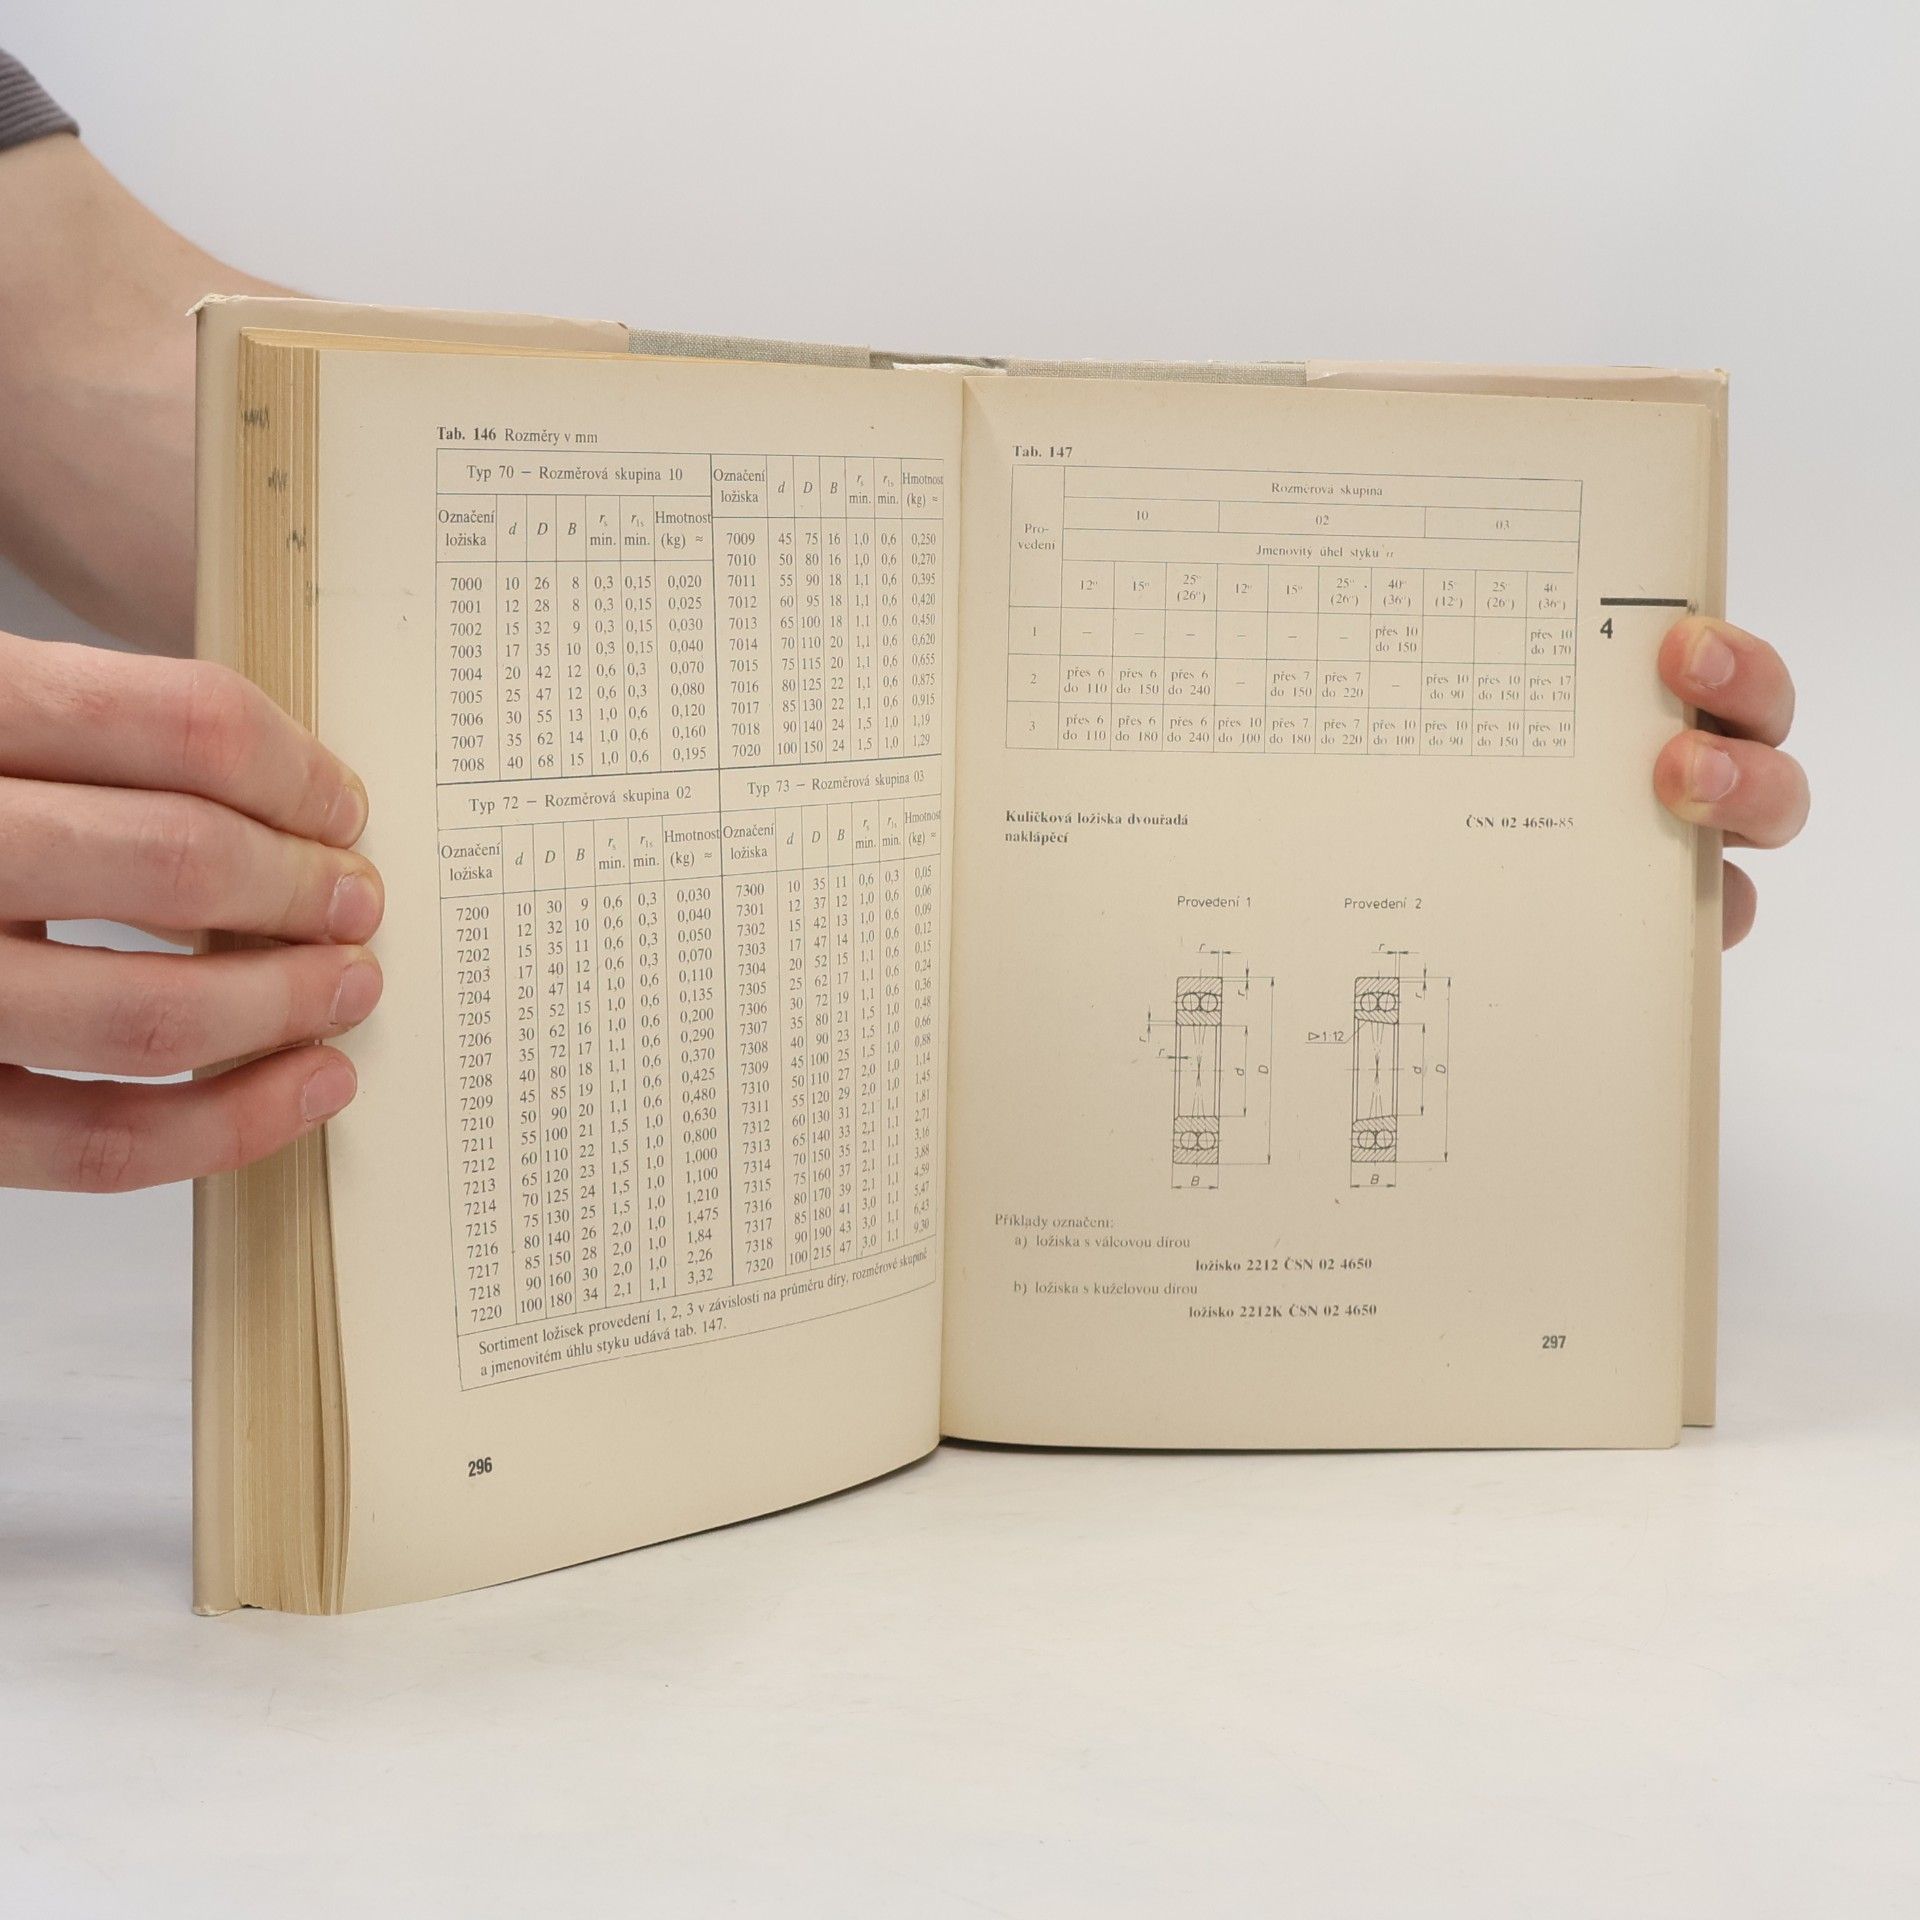 Tab. 146 Rozměry v mm
Typ 70 — Rozměrová skupina 10
Označení ložiska d D B rs min. r1s min. Hmotnost (kg) ≈
7000 10 26 8 0,3 0,15 0,020
7001 12 28 8 0,3 0,15 0,025
7002 15 32 9 0,3 0,15 0,030
7003 17 35 10 0,3 0,15 0,040
7004 20 42 12 0,6 0,3 0,070
7005 25 47 12 0,6 0,3 0,080
7006 30 55 13 1,0 0,6 0,120
7007 35 62 14 1,0 0,6 0,160
7008 40 68 15 1,0 0,6 0,195
Označení ložiska d D B rs min. r1s min. Hmotnost (kg) ≈
7009 45 75 16 1,0 0,6 0,250
7010 50 80 16 1,0 0,6 0,270
7011 55 90 18 1,1 0,6 0,395
7012 60 95 18 1,1 0,6 0,420
7013 65 100 18 1,1 0,6 0,450
7014 70 110 20 1,1 0,6 0,620
7015 75 115 20 1,1 0,6 0,655
7016 80 125 22 1,1 0,6 0,875
7017 85 130 22 1,1 0,6 0,915
7018 90 140 24 1,5 1,0 1,19
7020 100 150 24 1,5 1,0 1,29
Typ 72 — Rozměrová skupina 02
Označení ložiska d D B rs min. r1s min. Hmotnost (kg) ≈
7200 10 30 9 0,6 0,3 0,030
7201 12 32 10 0,6 0,3 0,040
7202 15 35 11 0,6 0,3 0,050
7203 17 40 12 0,6 0,3 0,070
7204 20 47 14 1,0 0,6 0,110
7205 25 52 15 1,0 0,6 0,135
7206 30 62 16 1,0 0,6 0,200
7207 35 72 17 1,1 0,6 0,290
7208 40 80 18 1,1 0,6 0,370
7209 45 85 19 1,1 0,6 0,425
7210 50 90 20 1,1 0,6 0,480
7211 55 100 21 1,5 1,0 0,630
7212 60 110 22 1,5 1,0 0,800
7213 65 120 23 1,5 1,0 1,000
7214 70 125 24 1,5 1,0 1,100
7215 75 130 25 1,5 1,0 1,210
7216 80 140 26 2,0 1,0 1,475
7217 85 150 28 2,0 1,0 1,84
7218 90 160 30 2,0 1,0 2,26
7220 100 180 34 2,1 1,1 3,32
Typ 73 — Rozměrová skupina 03
Označení ložiska d D B rs min. r1s min. Hmotnost (kg) ≈
7300 10 35 11 0,6 0,3 0,05
7301 12 37 12 1,0 0,6 0,06
7302 15 42 13 1,0 0,6 0,09
7303 17 47 14 1,0 0,6 0,12
7304 20 52 15 1,1 0,6 0,15
7305 25 62 17 1,1 0,6 0,24
7306 30 72 19 1,1 0,6 0,36
7307 35 80 21 1,5 1,0 0,48
7308 40 90 23 1,5 1,0 0,66
7309 45 100 25 1,5 1,0 0,88
7310 50 110 27 2,0 1,0 1,14
7311 55 120 29 2,0 1,0 1,45
7312 60 130 31 2,1 1,1 1,81
7313 65 140 33 2,1 1,1 2,71
7314 70 150 35 2,1 1,1 3,16
7315 75 160 37 2,1 1,1 3,88
7316 80 170 39 2,1 1,1 4,59
7317 85 180 41 3,0 1,1 5,47
7318 90 190 43 3,0 1,1 6,43
7320 100 215 47 3,0 1,1 9,30
Sortiment ložisek provedení 1, 2, 3 v závislosti na průměru díry, rozměrové skupině
a jmenovitém úhlu styku udává tab. 147.
296
Tab. 147
Provedení
Rozměrová skupina
10 02 03
Jmenovitý úhel styku α
12° 15° 25° (26°) 12° 15° 25° (26°) 40° (36°) 15° (12°) 25° (26°) 40° (36°)
1 – – – – – – přes 10 do 150 přes 10 do 170
2 přes 6 do 110 přes 6 do 150 přes 6 do 240 – přes 7 do 150 přes 7 do 220 – přes 10 do 90 přes 10 do 150 přes 17 do 170
3 přes 6 do 110 přes 6 do 180 přes 6 do 240 přes 10 do 100 přes 7 do 180 přes 7 do 220 přes 10 do 100 přes 10 do 90 přes 10 do 150 přes 10 do 90
4
Kuličková ložiska dvouřadá
naklápěcí
ČSN 02 4650-85
Provedení 1
Provedení 2
r r r r d D B
r r ▷1:12 d D B
Příklady označení:
a) ložiska s válcovou dírou
ložisko 2212 ČSN 02 4650
b) ložiska s kuželovou dírou
ložisko 2212K ČSN 02 4650
297